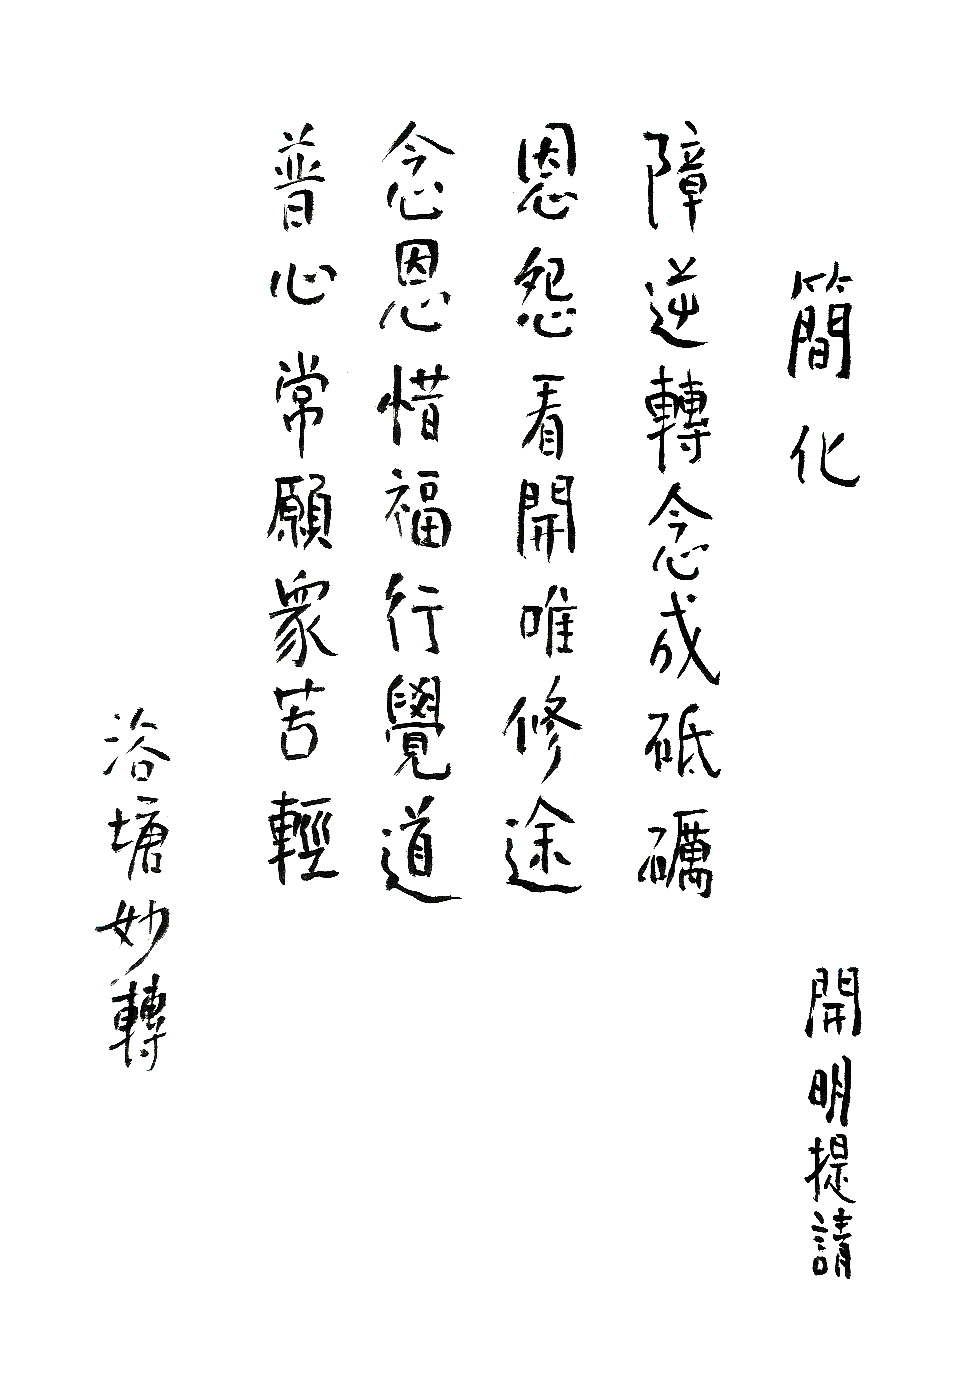 簡化
開明提請
障逆轉念成砥礪
恩怨看開唯修途
念恩惜福行覺道
普心常願眾苦輕
浴塘妙轉